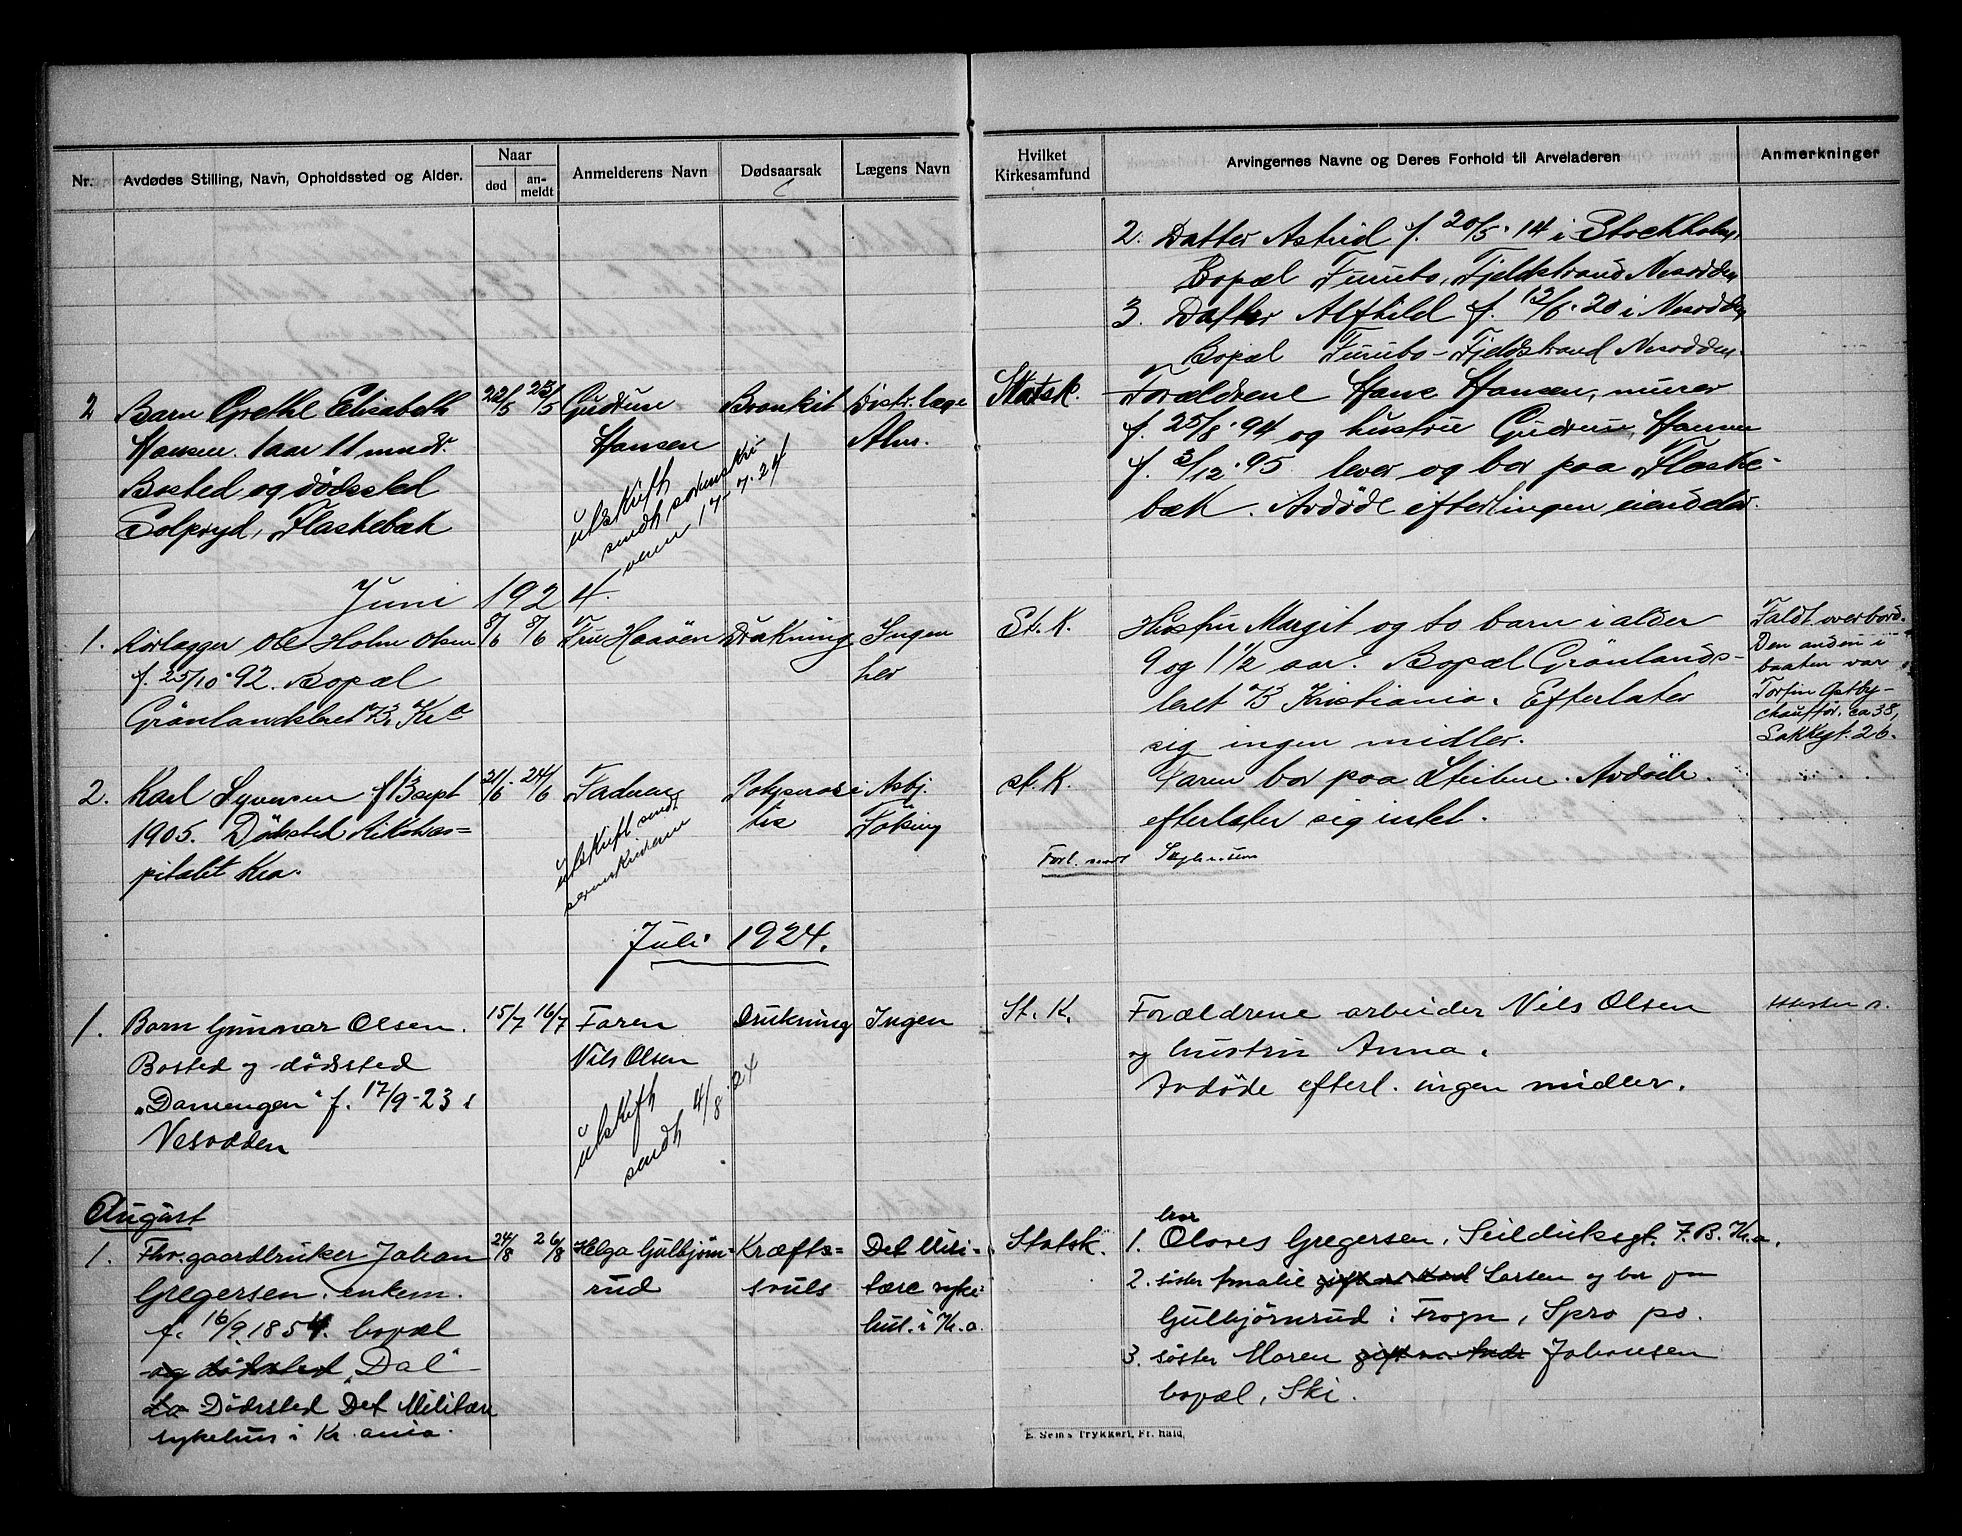 Nr.
Avdødes Stilling, Navn, Opholdssted og Alder.
Naar
død
an-
meldt
Anmelderens Navn
Dødsaarsak
Lægens Navn
Hvilket
Kirkesamfund
Arvingernes Navne og Deres Forhold til Arveladeren
Anmerkninger
2. Datter Astrid f. 20/5. 14 i Stockholm,
Bopæl Furubo, Fjeldstrand Nesodden
3. Datter Alfhild f. 12/6. 20 i Nesodden
Bopæl Furubo - Fjeldstrand Nesodden.
2 Barn Grethe Elisabeth
Hansen 1 aar 11 mndr.
Bosted og dødssted
Solpryd, Flaskebæk
22/5 23/5
Gudrun
Hansen
utskrift
sendt
17-7.24
Bronkit
Distr. læge
Alm.
Statsk.
Forældrene Hans Hansen, murer
f. 25/8. 94 og hustru Gudrun Hansen
f. 3/12. 95 lever og bor paa Flaske-
bæk. Avdøde efterl ingen eiendeler.
Juni 1924.
1. Rørlægger Ole Holm Olsen
f. 25/10. 92. Bopæl
Grønlandsleret 73, Kr.a
8/6 8/6
Fru Haaøen
Drukning
Ingen
her
St. K.
Hustru Margit og to barn i alder
9 og 1 1/2 aar. Bopæl Grønlands-
leret 73 Kristiania. Efterlater
sig ingen midler.
Faldt overbord.
Den anden i
baaten var
Torfin Østby -
chauffør, ca 38,
Lakkegt. 26.
2. Karl Syversen f. 13 sept
1905. Dødssted Rikshos=
pitalet Kra.
21/6 24/6
Faderen
utskrift sendt
Asbj.
St. K.
Faren bor paa Steilene. Avdøde
efterlater sig intet.
Juli 1924.
1. Barn Gunnar Olsen.
Bosted og dødssted
"Damengen" f. 17/9-23 i
Nesodden
15/7 16/7
Faren
Nils Olsen
utskrift
sendt 4/8 24
Drukning
Ingen
St. K.
Forældrene arbeider Nils Olsen
og hustru Anna.
Avdøde efterl. ingen midler.
August
1. Fhv. gaardbruker Johan
Gregersen, enkem.
f. 16/9 1854. bopæl
og dødssted "Dal"
Dødssted Det Militære
sykehus i Kr.ania.
24/8 26/8
Helga Gulbjørn-
rud
Kræfts=
svuls
Det Mili-
tære syke
hus. i Kr.a.
Statsk.
bror
1. Olaves Gregersen, Seilduksgt. 7.B. Kr.a.
2. søster Amalie gift m. Karl Larsen og bor paa
Gulbjørnrud i Frogn, Spro po.
3. søster Maren Johansen
bopæl, Ski.
E. Sem's Trykkeri, Fr.hald.